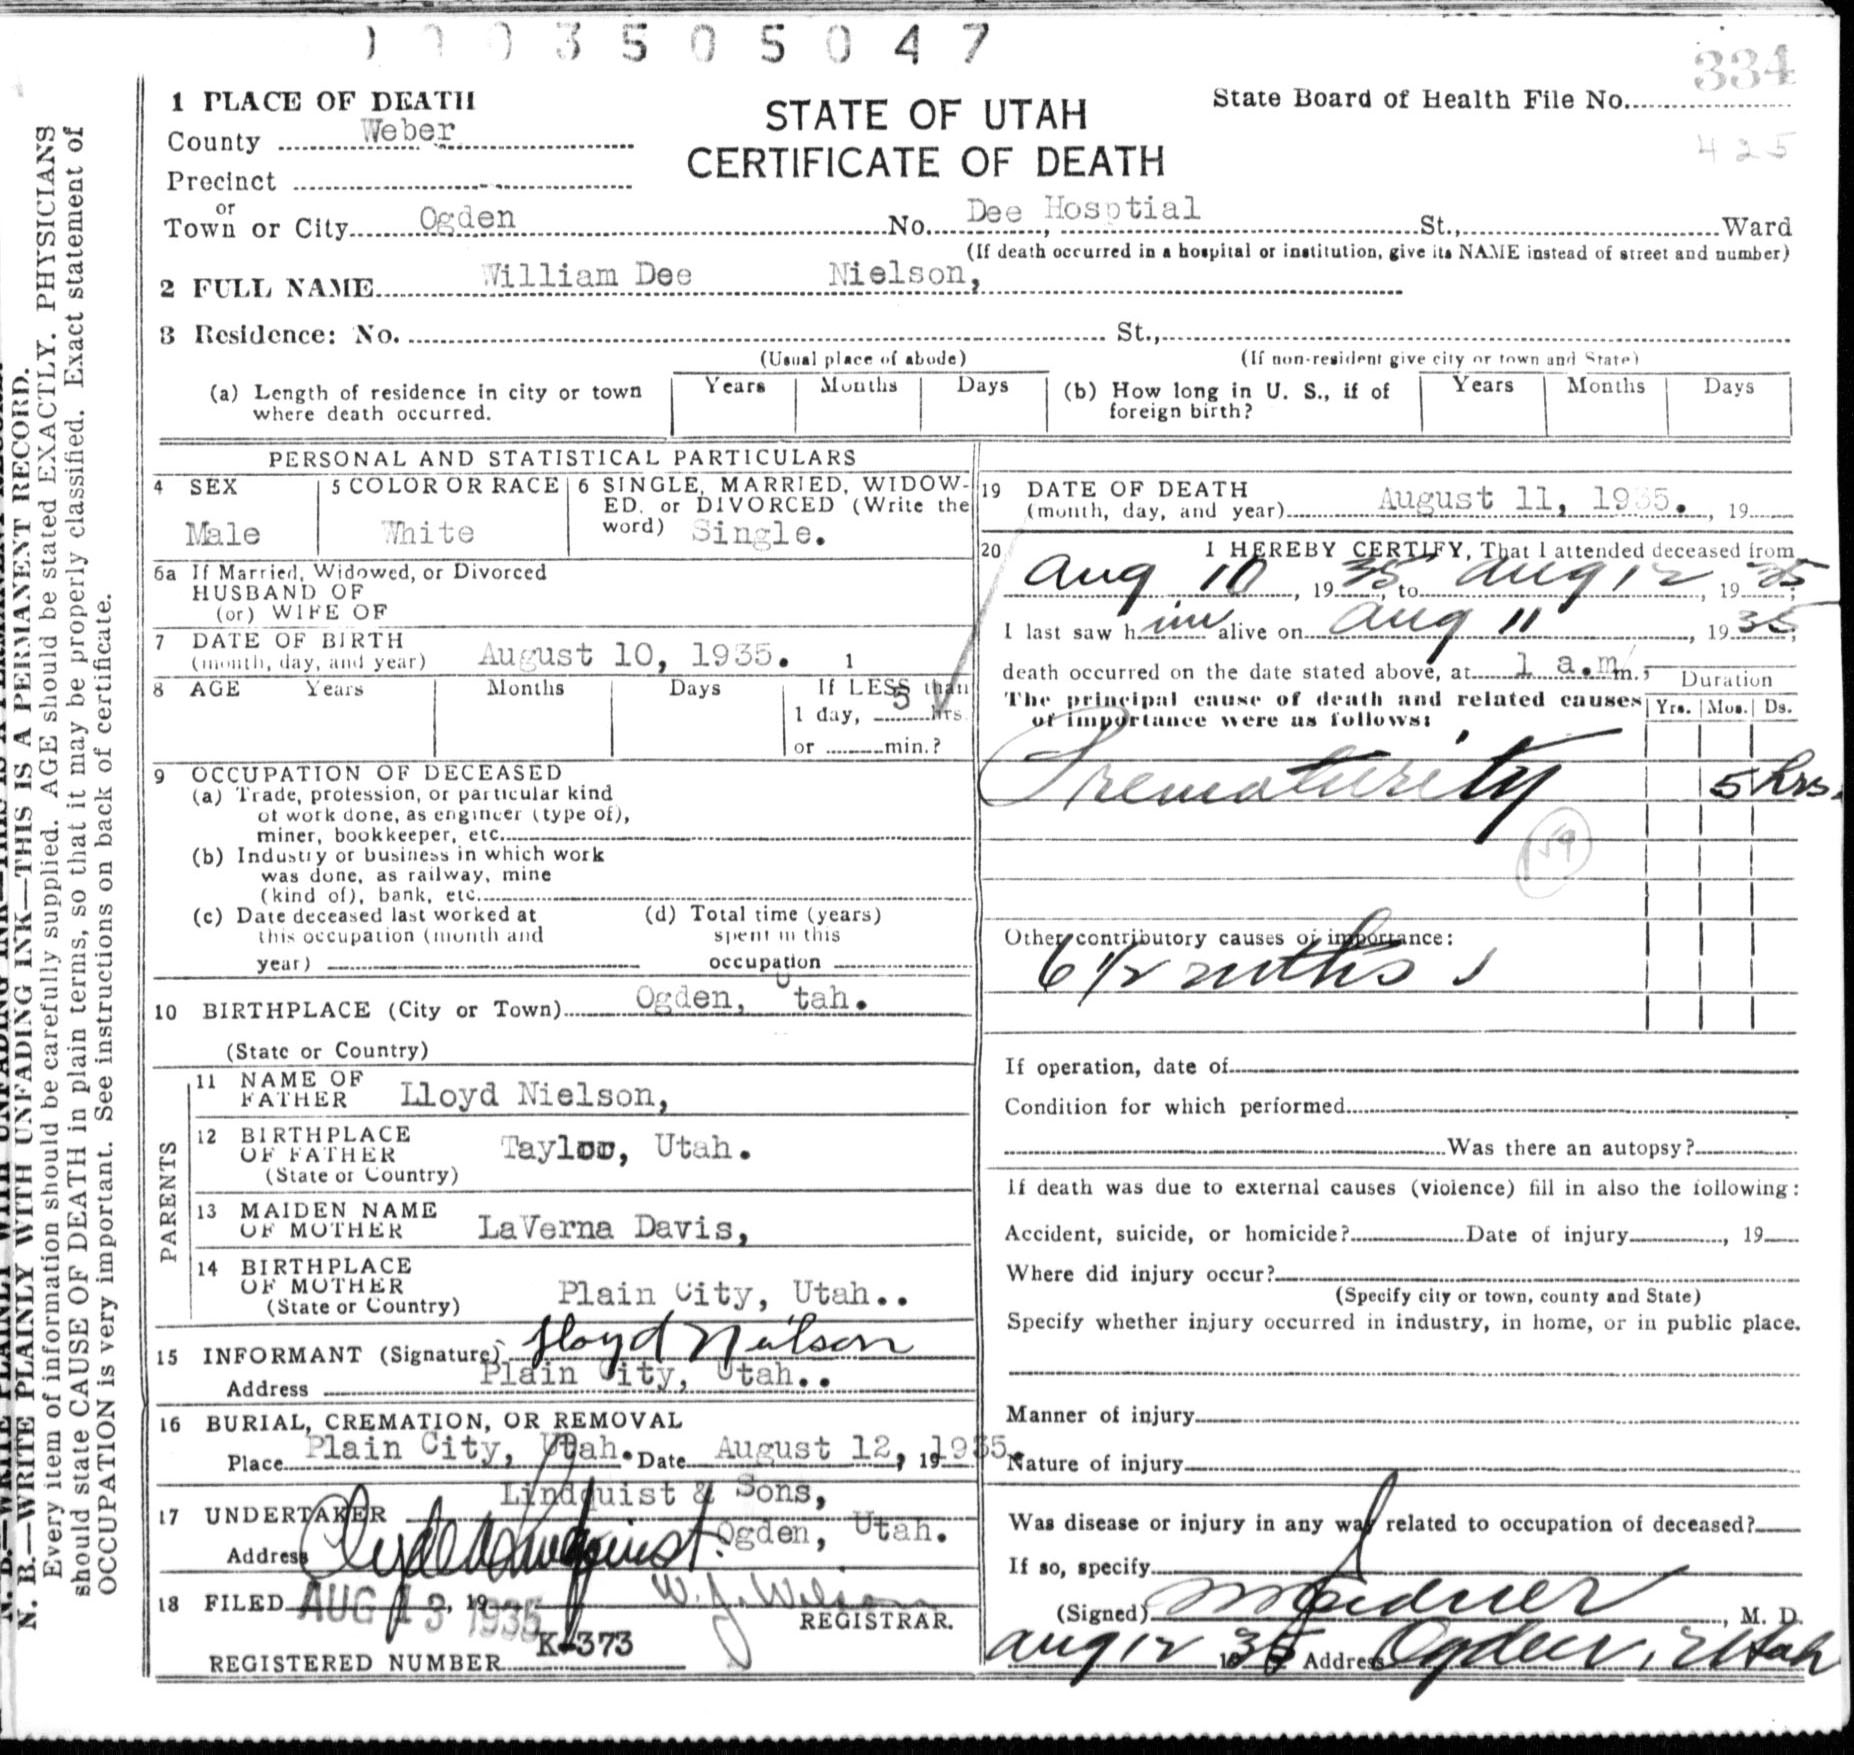 3 5 0 5 0 4 7
334
425
1 PLACE OF DEATH
County Weber
Precinct
or
Town or City Ogden No. Dee Hosptial St., Ward
(If death occurred in a hospital or institution, give its NAME instead of street and number)
STATE OF UTAH
CERTIFICATE OF DEATH
State Board of Health File No.
2 FULL NAME William Dee Nielson,
3 Residence: No. St.,
(Usual place of abode) (If non-resident give city or town and State)
(a) Length of residence in city or town where death occurred. Years Months Days
(b) How long in U. S., if of foreign birth? Years Months Days
PERSONAL AND STATISTICAL PARTICULARS
4 SEX Male
5 COLOR OR RACE White
6 SINGLE, MARRIED, WIDOW-
ED, or DIVORCED (Write the
word) Single.
6a If Married, Widowed, or Divorced
HUSBAND OF
(or) WIFE OF
7 DATE OF BIRTH
(month, day, and year) August 10, 1935. 1
8 AGE Years Months Days If LESS than
1 day, 5 hrs.
or min.?
9 OCCUPATION OF DECEASED
(a) Trade, profession, or particular kind
of work done, as engineer (type of),
miner, bookkeeper, etc.
(b) Industry or business in which work
was done, as railway, mine
(kind of), bank, etc.
(c) Date deceased last worked at
this occupation (month and
year)
(d) Total time (years)
spent in this
occupation
10 BIRTHPLACE (City or Town) Ogden, Utah.
(State or Country)
PARENTS
11 NAME OF
FATHER Lloyd Nielson,
12 BIRTHPLACE
OF FATHER Taylor, Utah.
(State or Country)
13 MAIDEN NAME
OF MOTHER LaVerna Davis,
14 BIRTHPLACE
OF MOTHER Plain City, Utah..
(State or Country)
15 INFORMANT (Signature) Lloyd Nielson
Address Plain City, Utah..
16 BURIAL, CREMATION, OR REMOVAL
Place Plain City, Utah. Date August 12, 1935.
17 UNDERTAKER Lindquist & Sons,
Address Ogden, Utah.
18 FILED AUG 13 1935, 19
W. J. Wilson
REGISTRAR.
REGISTERED NUMBER K-373
19 DATE OF DEATH
(month, day, and year) August 11, 1935., 19
20 I HEREBY CERTIFY, That I attended deceased from
Aug 10, 1935, to Aug 12, 1935;
I last saw him alive on Aug 11, 1935;
death occurred on the date stated above, at 1 a.m.;
The principal cause of death and related causes
of importance were as follows:
Duration
Yrs. Mos. Ds.
Prematurity 5 hrs.
159
Other contributory causes of importance:
6 1/2 mths
If operation, date of
Condition for which performed
Was there an autopsy?
If death was due to external causes (violence) fill in also the following:
Accident, suicide, or homicide? Date of injury, 19
Where did injury occur?
(Specify city or town, county and State)
Specify whether injury occurred in industry, in home, or in public place.
Manner of injury
Nature of injury
Was disease or injury in any way related to occupation of deceased?
If so, specify
(Signed), M. D.
Aug 12 1935 Address Ogden, Utah
N. B.—WRITE PLAINLY WITH UNFADING INK—THIS IS A PERMANENT RECORD.
Every item of information should be carefully supplied. AGE should be stated EXACTLY. PHYSICIANS
should state CAUSE OF DEATH in plain terms, so that it may be properly classified. Exact statement of
OCCUPATION is very important. See instructions on back of certificate.